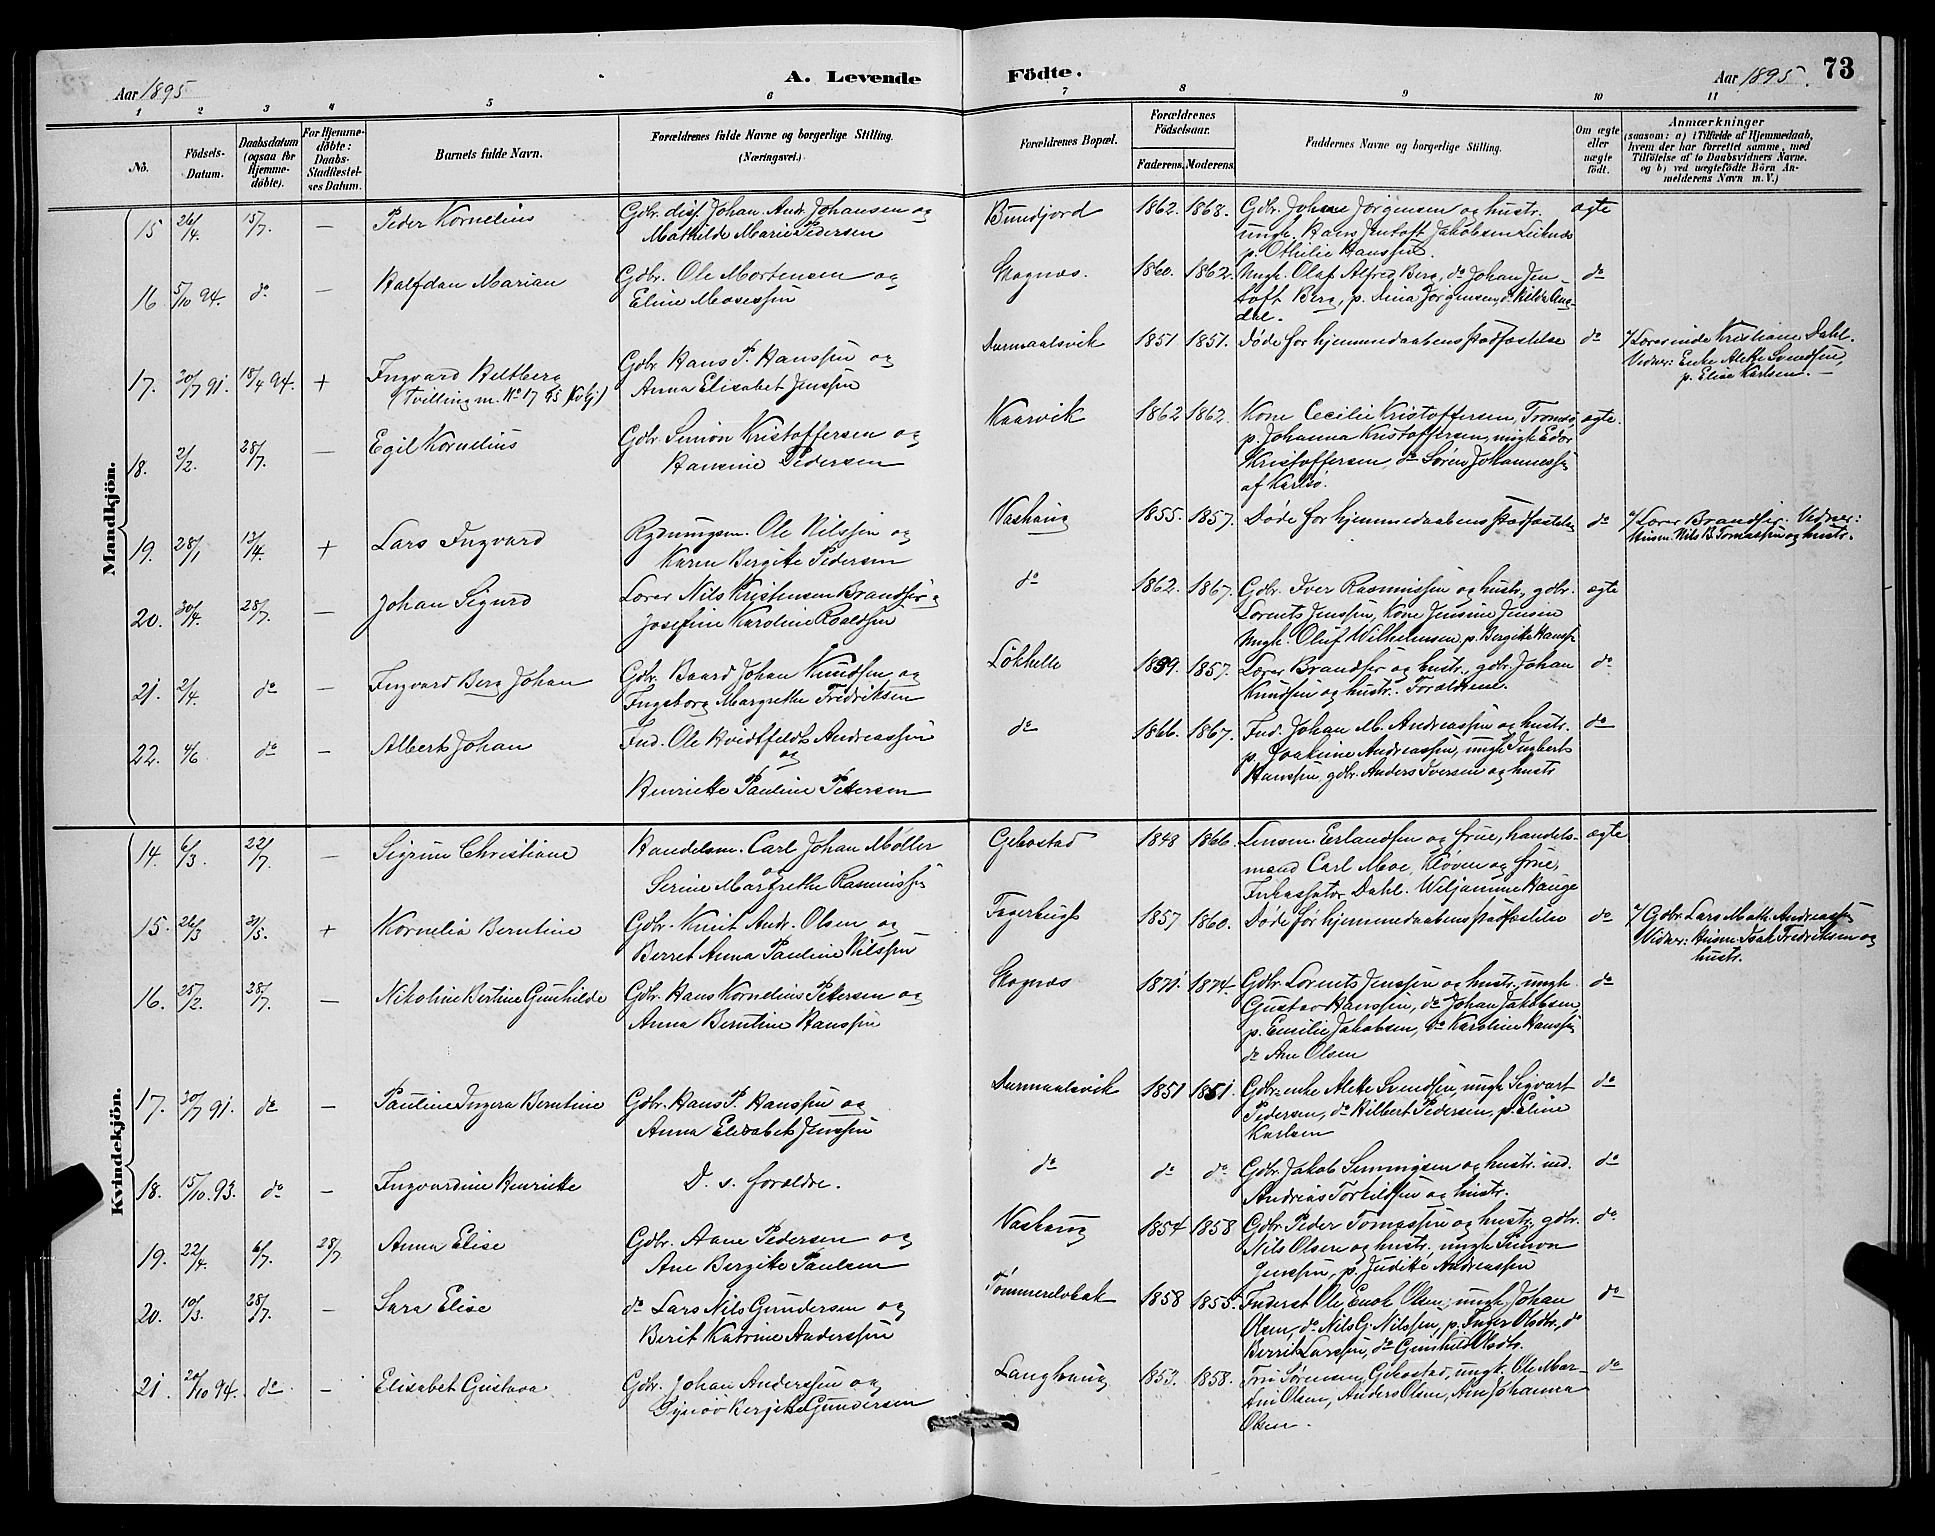 Aar 1895
A. Levende Födte.
Aar 1895.
73
1 2 3 4 5 6 7 8 9 10 11
No.
Födsels-Datum.
Daabsdatum (ogsaa for Hjemme-döbte).
For Hjemme-döbte: Daabs-Stadfæstel-ses Datum.
Barnets fulde Navn.
Forældrenes fulde Navne og borgerlige Stilling. (Næringsvei.)
Forældrenes Bopæl.
Forældrenes Födselsaar.
Faderens. Moderens.
Faddernes Navne og borgerlige Stilling.
Om ægte eller uægte födt.
Anmærkninger
(saasom: a) i Tilfælde af Hjemmedaab, hvem der har forrettet samme, med Tilföielse af to Daabsvidners Navne, og b) ved uægtefödte Börn An-melderens Navn m. V.)
Mandkjön.
15 26/4. 15/7. — Peder Kornelius
Gdbr. diss. Johan Andr. Johansen og
Mathilde Marie Pedersen
Bundjord 1862. 1868.
Gdbr. Johan Jörgensen og hustr.
ungk. Hans Jentoft Jakobsen Leiknes
p. Othilie Hanssen.
ægte
16 5/10 94. do — Halfdan Marian
Gdbr. Ole Mortensen og
Eline Mosessen
Skognæs. 1860. 1862.
Ungk. Olaf Alfred Berg, do Johan Jen-
toft Berg, p. Dina Jörgensen, do Hilda Aag-
dal.
do
17. 30/7 91. 15/4 94. + Ingvard Hiltberg
(Tvilling m. No 17 95 Kvkj)
Gdbr. Hans P. Hanssen og
Anna Elisabet Jenssen
Durmaalsvik 1851 1851.
Døde før hjemmedaabens stadfæstelse
do
a/ Lærerinde Kristiane Dahl.
Vidner: Enke Alette Svendsen,
p. Elise Karlsen. —
18. 2/2. 28/7. — Egil Kornelius
Gdbr. Simon Kristoffersen og
Hansine Pedersen
Kaarvik 1862 1862.
Kone Cecilie Kristoffersen, Tromsø,
p. Johanna Kristoffersen, ungk. Edor
Kristoffersen, do Sören Johannessen
af Karlsø.
ægte.
19. 28/1 13/4. + Lars Ingvard
Rydningsm. Ole Nilssen og
Karen Bergitte Pedersen
Vashaug 1855. 1857.
Døde før hjemmedaabens stadfæstelse
do
a/ Lærer Brandser. Vidner:
Husm. Nils B. Tomassen og hustr.
20. 30/4. 28/7. — Johan Sigurd
Lærer Nils Kristensen Brandser og
Josefine Karoline Roaldsen
do 1862. 1867.
Gdbr. Iver Rasmussen og hustr., gdbr.
Lorents Jenssen, Kone Jensine Jensen
Ungk. Oluf Wilhelmsen, p. Bergitte Hanssen
ægte
21. 2/4. do — Ingvard Berg Johan
Gdbr. Baard Johan Knudsen og
Ingeborg Margrethe Fredriksen
Løkhelle 1859. 1857.
Lærer Brandser og hustr., gdbr. Johan
Knudsen og hustr. Forældrene.
do
22. 4/6. do — Albert Johan
Ind. Ole Hvidtfeldt Andreassen
og
Henriette Pauline Pettersen
do 1866. 1867.
Ind. Johan M. Andreassen og hustr.
p. Joakime Andreassen, ungk. Ingbert
Hanssen, gdbr. Anders Iversen og hustr
do
Kvindekjön.
14. 6/3. 22/7. — Sigrun Christiane
Handelsm. Carl Johan Møller
og
Serine Margrethe Rasmussen
Gibostad 1848 1866.
Lensm. Erlandsen og frue, handels-
mand Carl Moe, Kløven og frue,
Inkassator Dahl. Wiljamine Hauge
ægte
15. 26/3 31/5. + Kornelia Berntine
Gdbr. Knut Andr. Olsen og
Berret Anna Pauline Nilssen
1857 1860.
Døde før hjemmedaabens stadfæstelse
do
a/ Gdbr. Lars Math. Andreassen
Vidner: Husm. Isak Fredriksen og
hustr.
16. 25/2. 28/7. — Nikoline Bertine Gunhilde
Gdbr. Hans Kornelius Petersen og
Anna Berntine Hanssen
Skognæs 1871. 1874.
Gdbr. Lorents Jenssen og hustr., ungk.
Gustav Hanssen, do Johan Jakobsen,
p. Emilie Jakobsen, do Karoline Hanssen
do Ane Olsen
do
17. 30/7 91. do — Pauline Ingera Berntine
Gdbr. Hans P. Hanssen og
Anna Elisabet Jenssen
Durmaalsvik 1851 1851.
Gdbr. enke Alette Svendsen, ungk. Sigvart
Pedersen, do Hilbert Pedersen, p. Eline
Karlsen
do
18. 15/10. 93. do — Ingvardine Henriette
D. s. forældre.
do do do
Gdbr. Jakob Simmigsen og hustr. ind.
Andreas Torkildsen og hustr.
do
19. 22/4. 6/7. 28/7 Anna Elise
Gdbr. Aane Pedersen og
Ane Bergitte Paulsen
Vashaug 1854 1858
Gdbr. Peder Tomassen og hustr., gdbr.
Nils Olsen og hustr. ungk. Simon
Jenssen, p. Judite Andreassen
do
20. 10/3. 28/7. — Sara Elise
do Lars Nils Gundersen og
Berit Katrine Anderssen
Tømmerelvbak 1858 1855.
Inderst Ole Enok Olsen, ungk. Johan
Olsen, do Nils G. Nilssen, p. Inger Olsdtr., do
Berrit Larssen, do Gunhild Olsdtr.
do
21. 20/10 94. do — Elisabet Gustava
Gdbr. Johan Anderssen og
Synøv Bergitte Gundersen
Langhaug 1853. 1858.
Trin Sørensen, Gibostad, ungk. Ole Mar-
tin Olsen, Anders Olsen, Ane Johanna
Olsen.
do